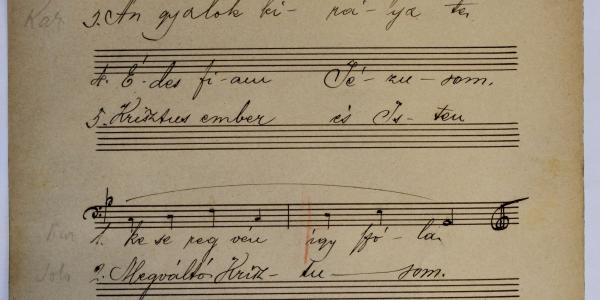 Kar.
3. An gyalok ki- rá- lya te
4. É- des fi- am Jé- zu- som.
5. Krisztus ember és Is- ten
1. ke se reg vén így szó- la
2. Megváltó Krisz- tu- som.